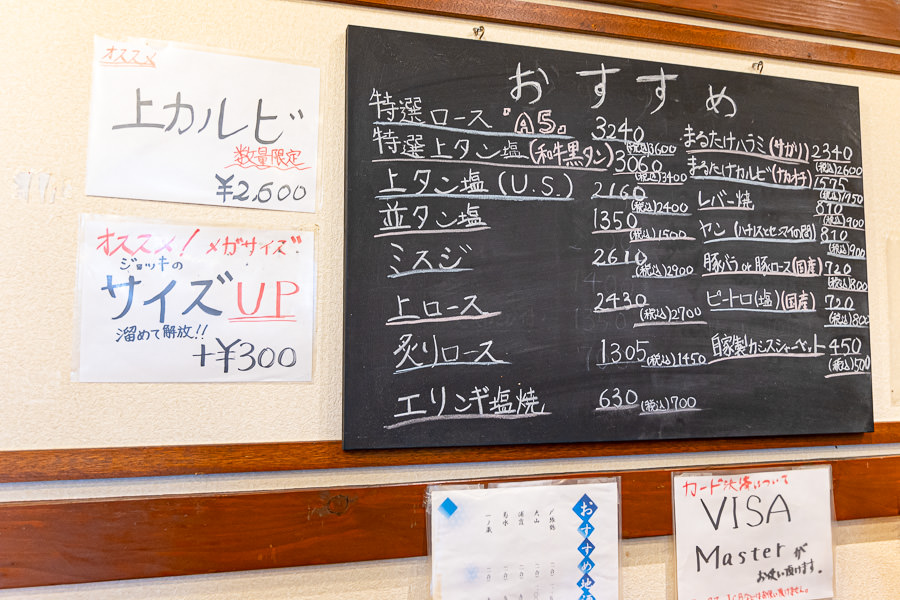 オススメ
上カルビ
数量限定
¥2,600
オススメ! メガサイズ
ジョッキの
サイズUP
溜めて解放!!
+¥300
おすすめ
特選ロース『A5』 3240 (税込)3600
特選上タン塩(和牛黒タン) 3060 (税込)3400
上タン塩(U.S.) 2160 (税込)2400
並タン塩 1350 (税込)1500
ミスジ 2610 (税込)2900
上ロース 2430 (税込)2700
炙りロース 1305 (税込)1450
エリンギ塩焼 630 (税込)700
まるたけハラミ(サガリ) 2340 (税込)2600
まるたけカルビ(ナカオチ) 1575 (税込)1750
レバー焼 810 (税込)900
ヤン(ハチノスとセンマイの間) 810 (税込)900
豚バラor豚ロース(国産) 720 (税込)800
ピートロ(塩)(国産) 720 (税込)800
自家製カシスシャーベット 450 (税込)500
おすすめ地酒
大山
浦霞
一ノ蔵
カード決済について
VISA
Masterが
お使い頂けます。